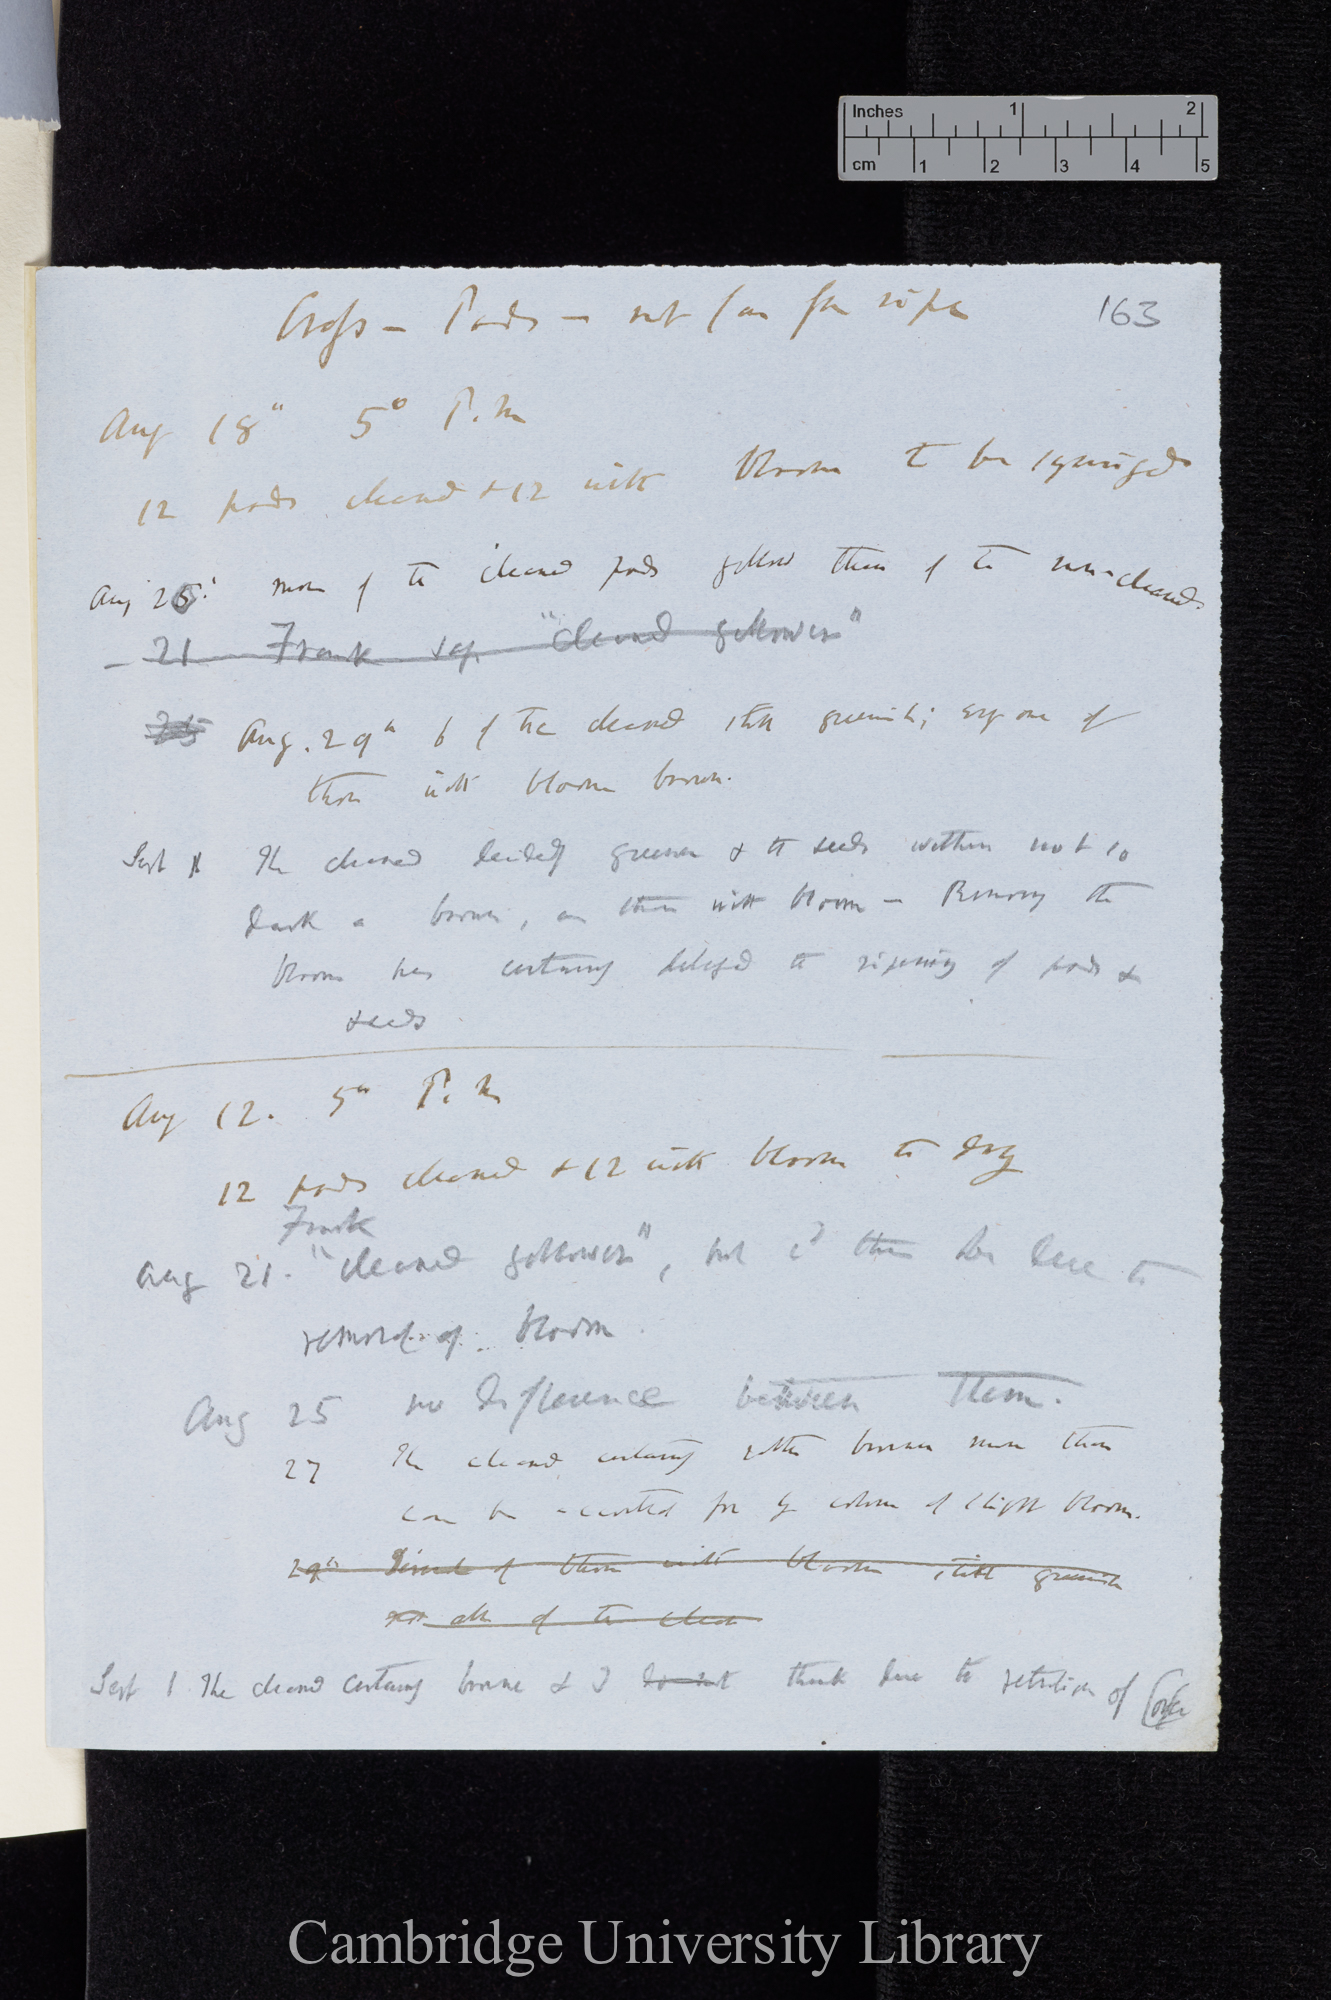 Inches 1 2
cm 1 2 3 4 5
163
Pods — not far from ripe
Aug 18th 5° P.m
12 pods cleaned & 12 with bloom to be syringed
Aug 25 more of the cleaned pods yellow than of the non-cleaned
— 21 Frank says "cleaned yellower"
25 Aug. 29th 6 of the cleaned still greenish; only one of
those with bloom brown.
Sept 1 The cleaned decidedly greener & the seeds within not so
dark or brown, as those with bloom — Removing the
bloom has certainly delayed the ripening of pods &
seeds
Aug 12. 5° P.m
12 pods cleaned & 12 with bloom to dry
Frank
Aug 21. "cleaned yellower", but cd this be due to
removal of bloom
Aug 25 no difference between them.
27 The cleaned certainly rather browner more than
can be accounted for by colour of slight bloom.
29th of those with bloom still greenish
not all of the clean
Sept 1 The cleaned certainly browner & I do not think due to retention of (over
Cambridge University Library